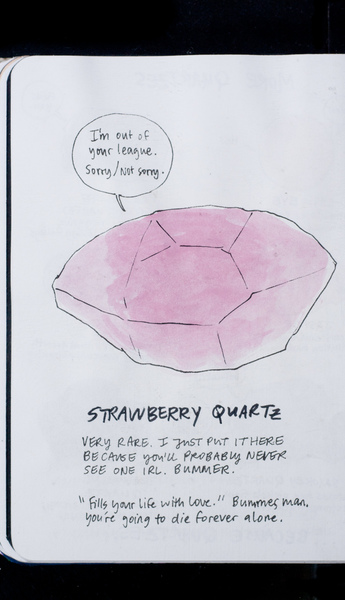 I'm out of
your league.
Sorry/Not sorry.
STRAWBERRY QUARTZ
VERY RARE. I JUST PUT IT HERE
BECAUSE YOU'LL PROBABLY NEVER
SEE ONE IRL. BUMMER.
"Fills your life with love." Bummer man,
you're going to die forever alone.